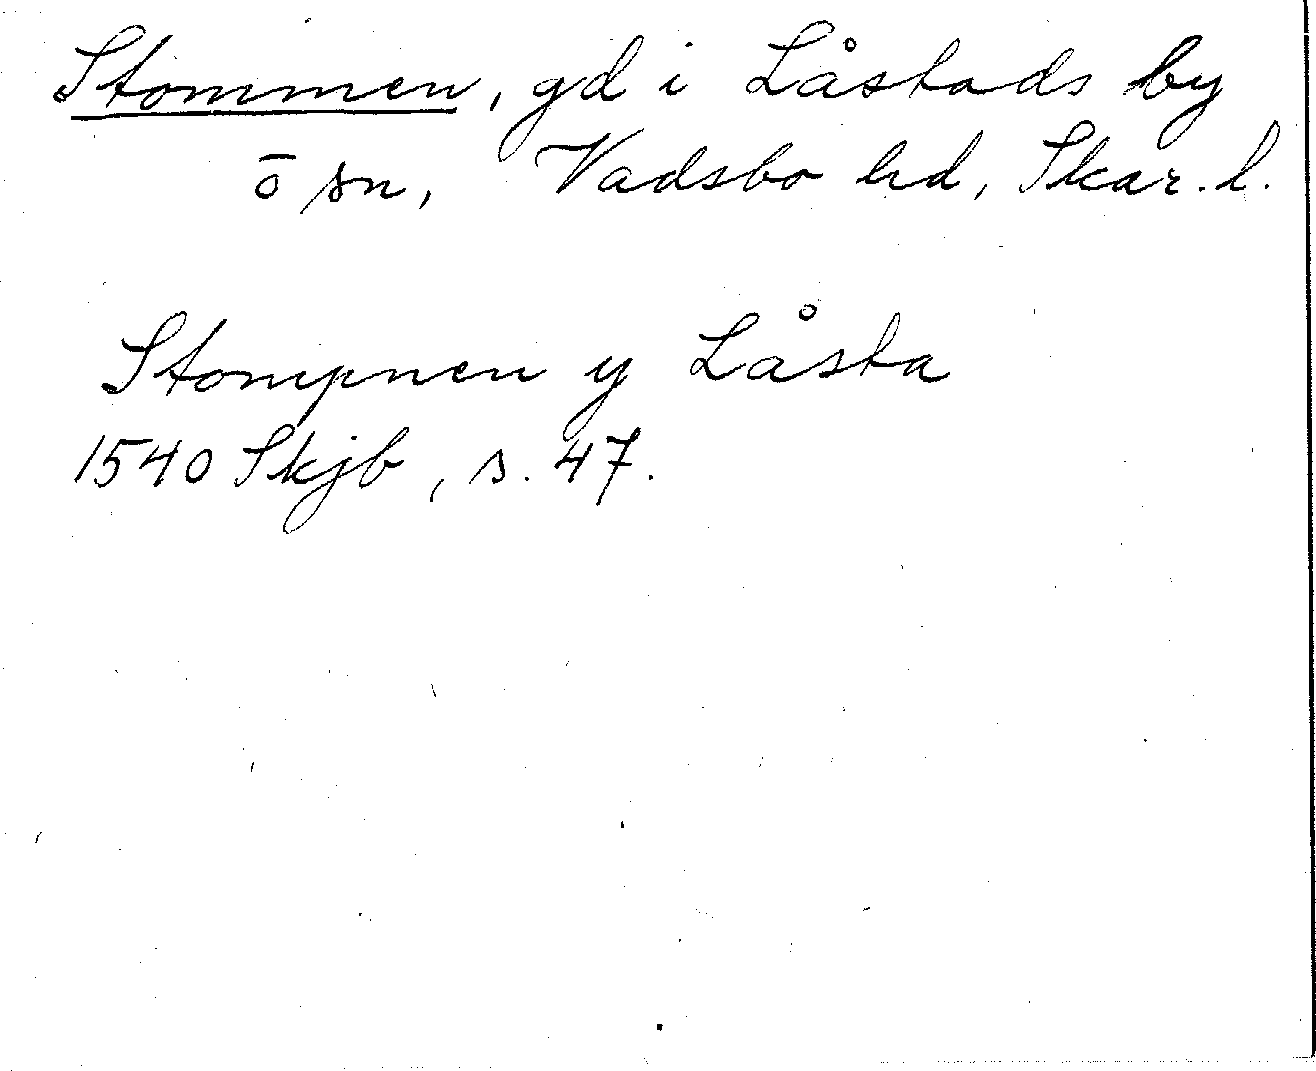 Stommen, gd i Låstads by
ō sn, Vadsbo hd, Skar. l.
Stompnen y Låsta
1540 Skjb, s. 47.